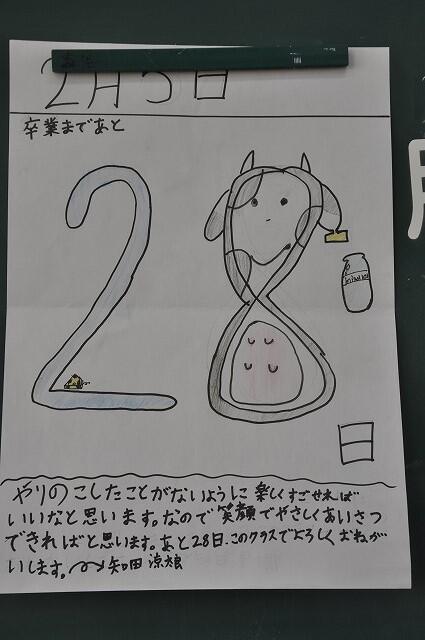 2月5日
卒業まであと
28
日
やりのこしたことがないように楽しくすごせれば
いいなと思います。なので笑顔でやさしくあいさつ
できればと思います。あと28日、このクラスでよろしくおねが
いします。